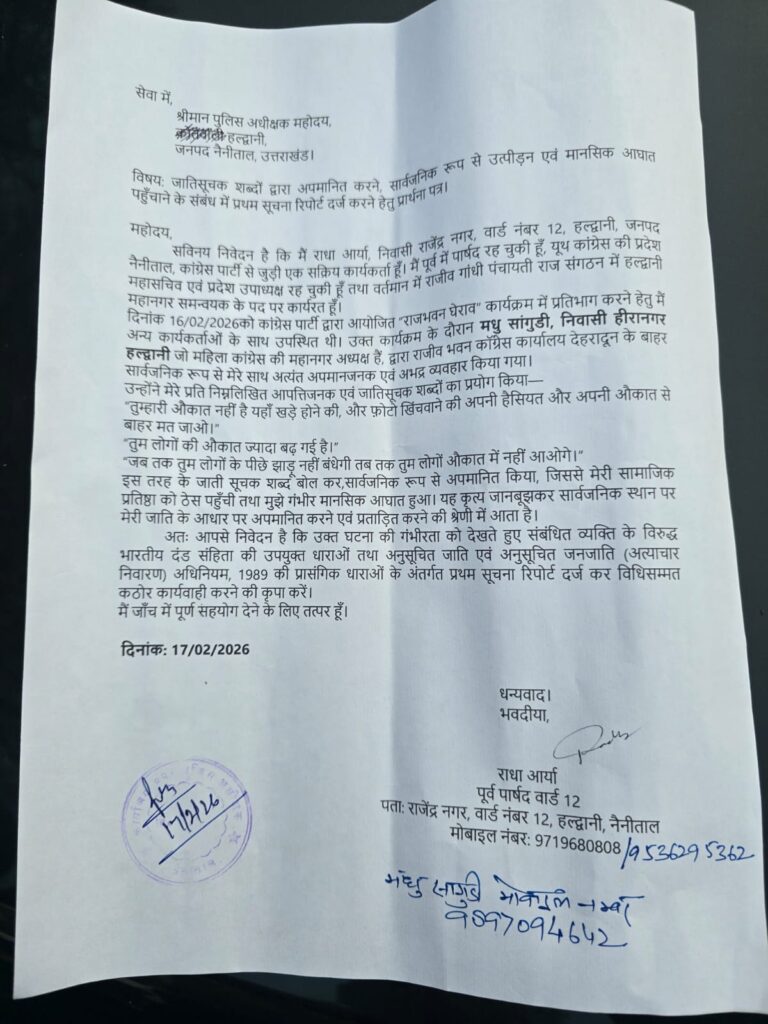 सेवा में,
श्रीमान पुलिस अधीक्षक महोदय,
हल्द्वानी,
जनपद नैनीताल, उत्तराखंड।
विषय: जातिसूचक शब्दों द्वारा अपमानित करने, सार्वजनिक रूप से उत्पीड़न एवं मानसिक आघात
पहुँचाने के संबंध में प्रथम सूचना रिपोर्ट दर्ज करने हेतु प्रार्थना पत्र।
महोदय,
सविनय निवेदन है कि मैं राधा आर्या, निवासी राजेंद्र नगर, वार्ड नंबर 12, हल्द्वानी, जनपद
नैनीताल, कांग्रेस पार्टी से जुड़ी एक सक्रिय कार्यकर्ता हूँ। मैं पूर्व में पार्षद रह चुकी हूँ, यूथ कांग्रेस की प्रदेश
महासचिव एवं प्रदेश उपाध्यक्ष रह चुकी हूँ तथा वर्तमान में राजीव गांधी पंचायती राज संगठन में हल्द्वानी
महानगर समन्वयक के पद पर कार्यरत हूँ।
दिनांक 16/02/2026को कांग्रेस पार्टी द्वारा आयोजित “राजभवन घेराव” कार्यक्रम में प्रतिभाग करने हेतु मैं
अन्य कार्यकर्ताओं के साथ उपस्थित थी। उक्त कार्यक्रम के दौरान मधु सांगुडी, निवासी हीरानगर
हल्द्वानी जो महिला कांग्रेस की महानगर अध्यक्ष हैं, द्वारा राजीव भवन कांग्रेस कार्यालय देहरादून के बाहर
सार्वजनिक रूप से मेरे साथ अत्यंत अपमानजनक एवं अभद्र व्यवहार किया गया।
उन्होंने मेरे प्रति निम्नलिखित आपत्तिजनक एवं जातिसूचक शब्दों का प्रयोग किया—
“तुम्हारी औकात नहीं है यहाँ खड़े होने की, और फ़ोटो खिंचवाने की अपनी हैसियत और अपनी औकात से
बाहर मत जाओ।”
“तुम लोगों की औकात ज्यादा बढ़ गई है।”
“जब तक तुम लोगों के पीछे झाड़ू नहीं बंधेगी तब तक तुम लोगों औकात में नहीं आओगे।”
इस तरह के जाती सूचक शब्द बोल कर,सार्वजनिक रूप से अपमानित किया, जिससे मेरी सामाजिक
प्रतिष्ठा को ठेस पहुँची तथा मुझे गंभीर मानसिक आघात हुआ। यह कृत्य जानबूझकर सार्वजनिक स्थान पर
मेरी जाति के आधार पर अपमानित करने एवं प्रताड़ित करने की श्रेणी में आता है।
अतः आपसे निवेदन है कि उक्त घटना की गंभीरता को देखते हुए संबंधित व्यक्ति के विरुद्ध
भारतीय दंड संहिता की उपयुक्त धाराओं तथा अनुसूचित जाति एवं अनुसूचित जनजाति (अत्याचार
निवारण) अधिनियम, 1989 की प्रासंगिक धाराओं के अंतर्गत प्रथम सूचना रिपोर्ट दर्ज कर विधिसम्मत
कठोर कार्यवाही करने की कृपा करें।
मैं जाँच में पूर्ण सहयोग देने के लिए तत्पर हूँ।
दिनांक: 17/02/2026
धन्यवाद।
भवदीया,
राधा आर्या
पूर्व पार्षद वार्ड 12
पता: राजेंद्र नगर, वार्ड नंबर 12, हल्द्वानी, नैनीताल
मोबाइल नंबर: 9719680808/9536295362
17/2/26
मधु सांगुडी मोबाइल नम्बर
9897094642